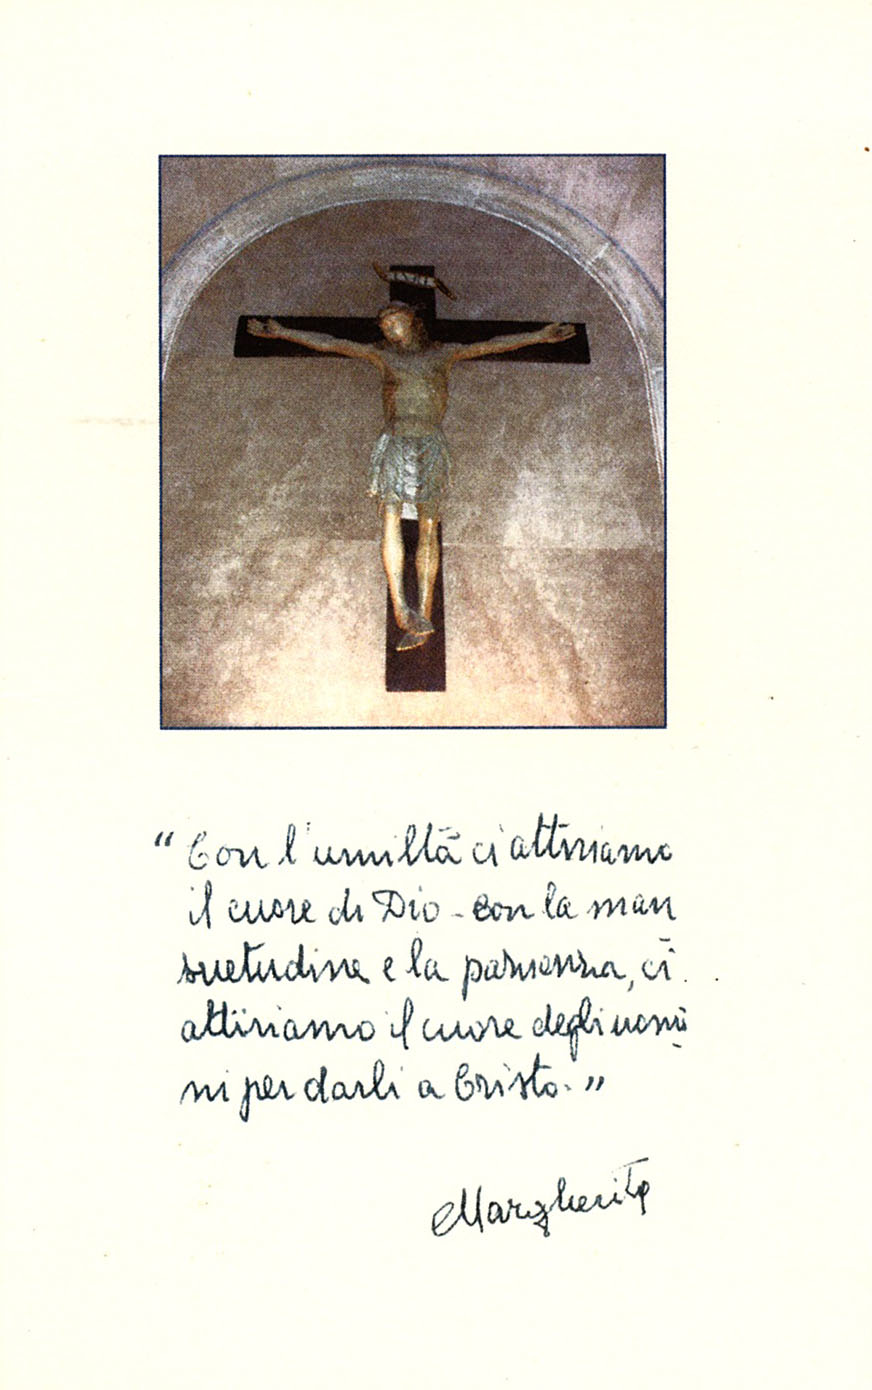 INRI
“Con l'umiltà ci attiriamo
il cuore di Dio - con la man
suetudine e la pazienza, ci
attiriamo il cuore degli uomi
ni per darli a Cristo.”
Margherita